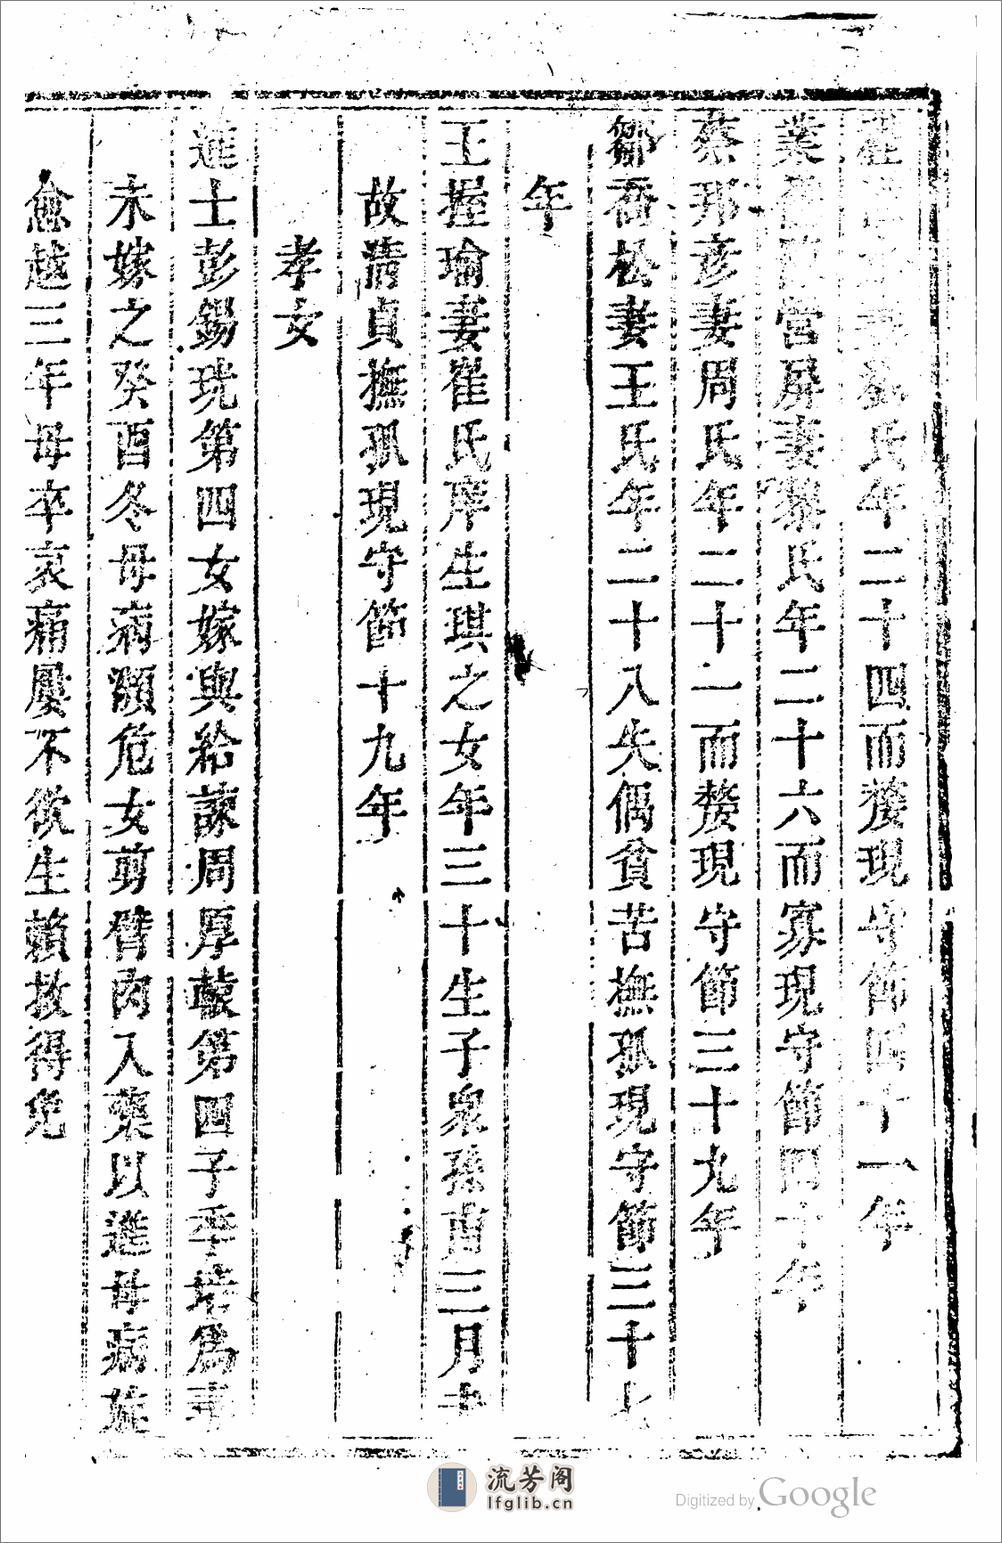 氏年二十四而嫠現守節四十一年
業營屏妻黎氏年二十六而寡現守節四十年
蔡那彦妻周氏年二十一而嫠現守節三十九年
鄒喬松妻王氏年二十八失偶貧苦撫孤現守節三十七
年
王握瑜妻崔氏庠生琪之女年三十生子泉孫甫三月夫
故清貞撫孤現守節十九年
孝女
進士彭錫珖第四女嫁與給諫周厚轅第四子季培爲妻
未嫁之癸酉冬母病瀕危女剪臂肉入藥以進母病旋
愈越三年母卒哀痛屢不欲生賴救得免
流芳阁
lfglib.cn
Digitized by Google